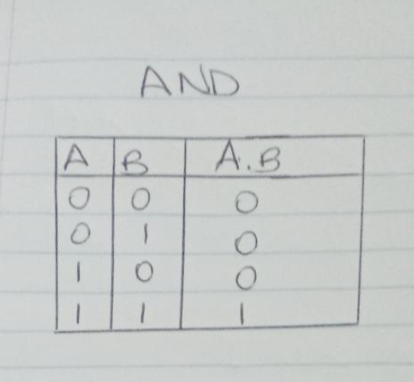 AND
A B A.B
0 0 0
0 1 0
1 0 0
1 1 1